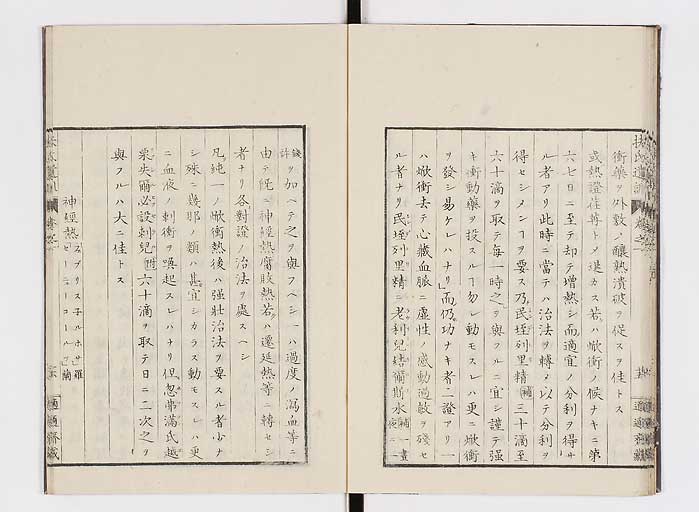 衝藥ヲ外敷シ釀熟潰破ヲ促スヲ佳トス
或熱證荏苒トメ退カス若ハ焮衝ノ候ナキニ第
六七日ニ至テ却テ增熱シ而適宜ノ分利ヲ得サ
ル者アリ此時ニ當テハ治法ヲ轉メ以テ分利ヲ
得セシメンヿヲ要ス乃民垤列里精補三十滴至
六十滴ヲ取テ每一時之ヲ與フルニ宜シ謹テ强
キ衝動藥ヲ投スルヿ勿レ動モスレハ更ニ焮衝
ヲ發シ易ケレハナリ而仍功ナキ者二證アリ一
ハ焮衝去テ心臟血脈ニ虛性ノ感動過敏ヲ殘セ
ル者ナリ民垤列里精ニ老利兒結爾斯水補一晝夜
錢許ヲ加ヘテ之ヲ與フヘシ一ハ過度ノ瀉血等ニ
由テ既ニ神經熱腐敗熱若ハ遷延熱等ニ轉セシ
者ナリ各對證ノ治法ヲ處スヘシ
凡純一ノ焮衝熱後ハ强壯治法ヲ要スル者少ナ
シ殊ニ幾那ノ類ハ甚宜シカラス動モスレハ更
ニ血液ノ刺衝ヲ喚起スレハナリ但忽弗滿氏越
栗失爾必設刺兒六十滴ヲ取テ日ニ二次之ヲ
與フルハ大ニ佳トス
神經熱
扶氏遺訓 卷之一
適適齋藏